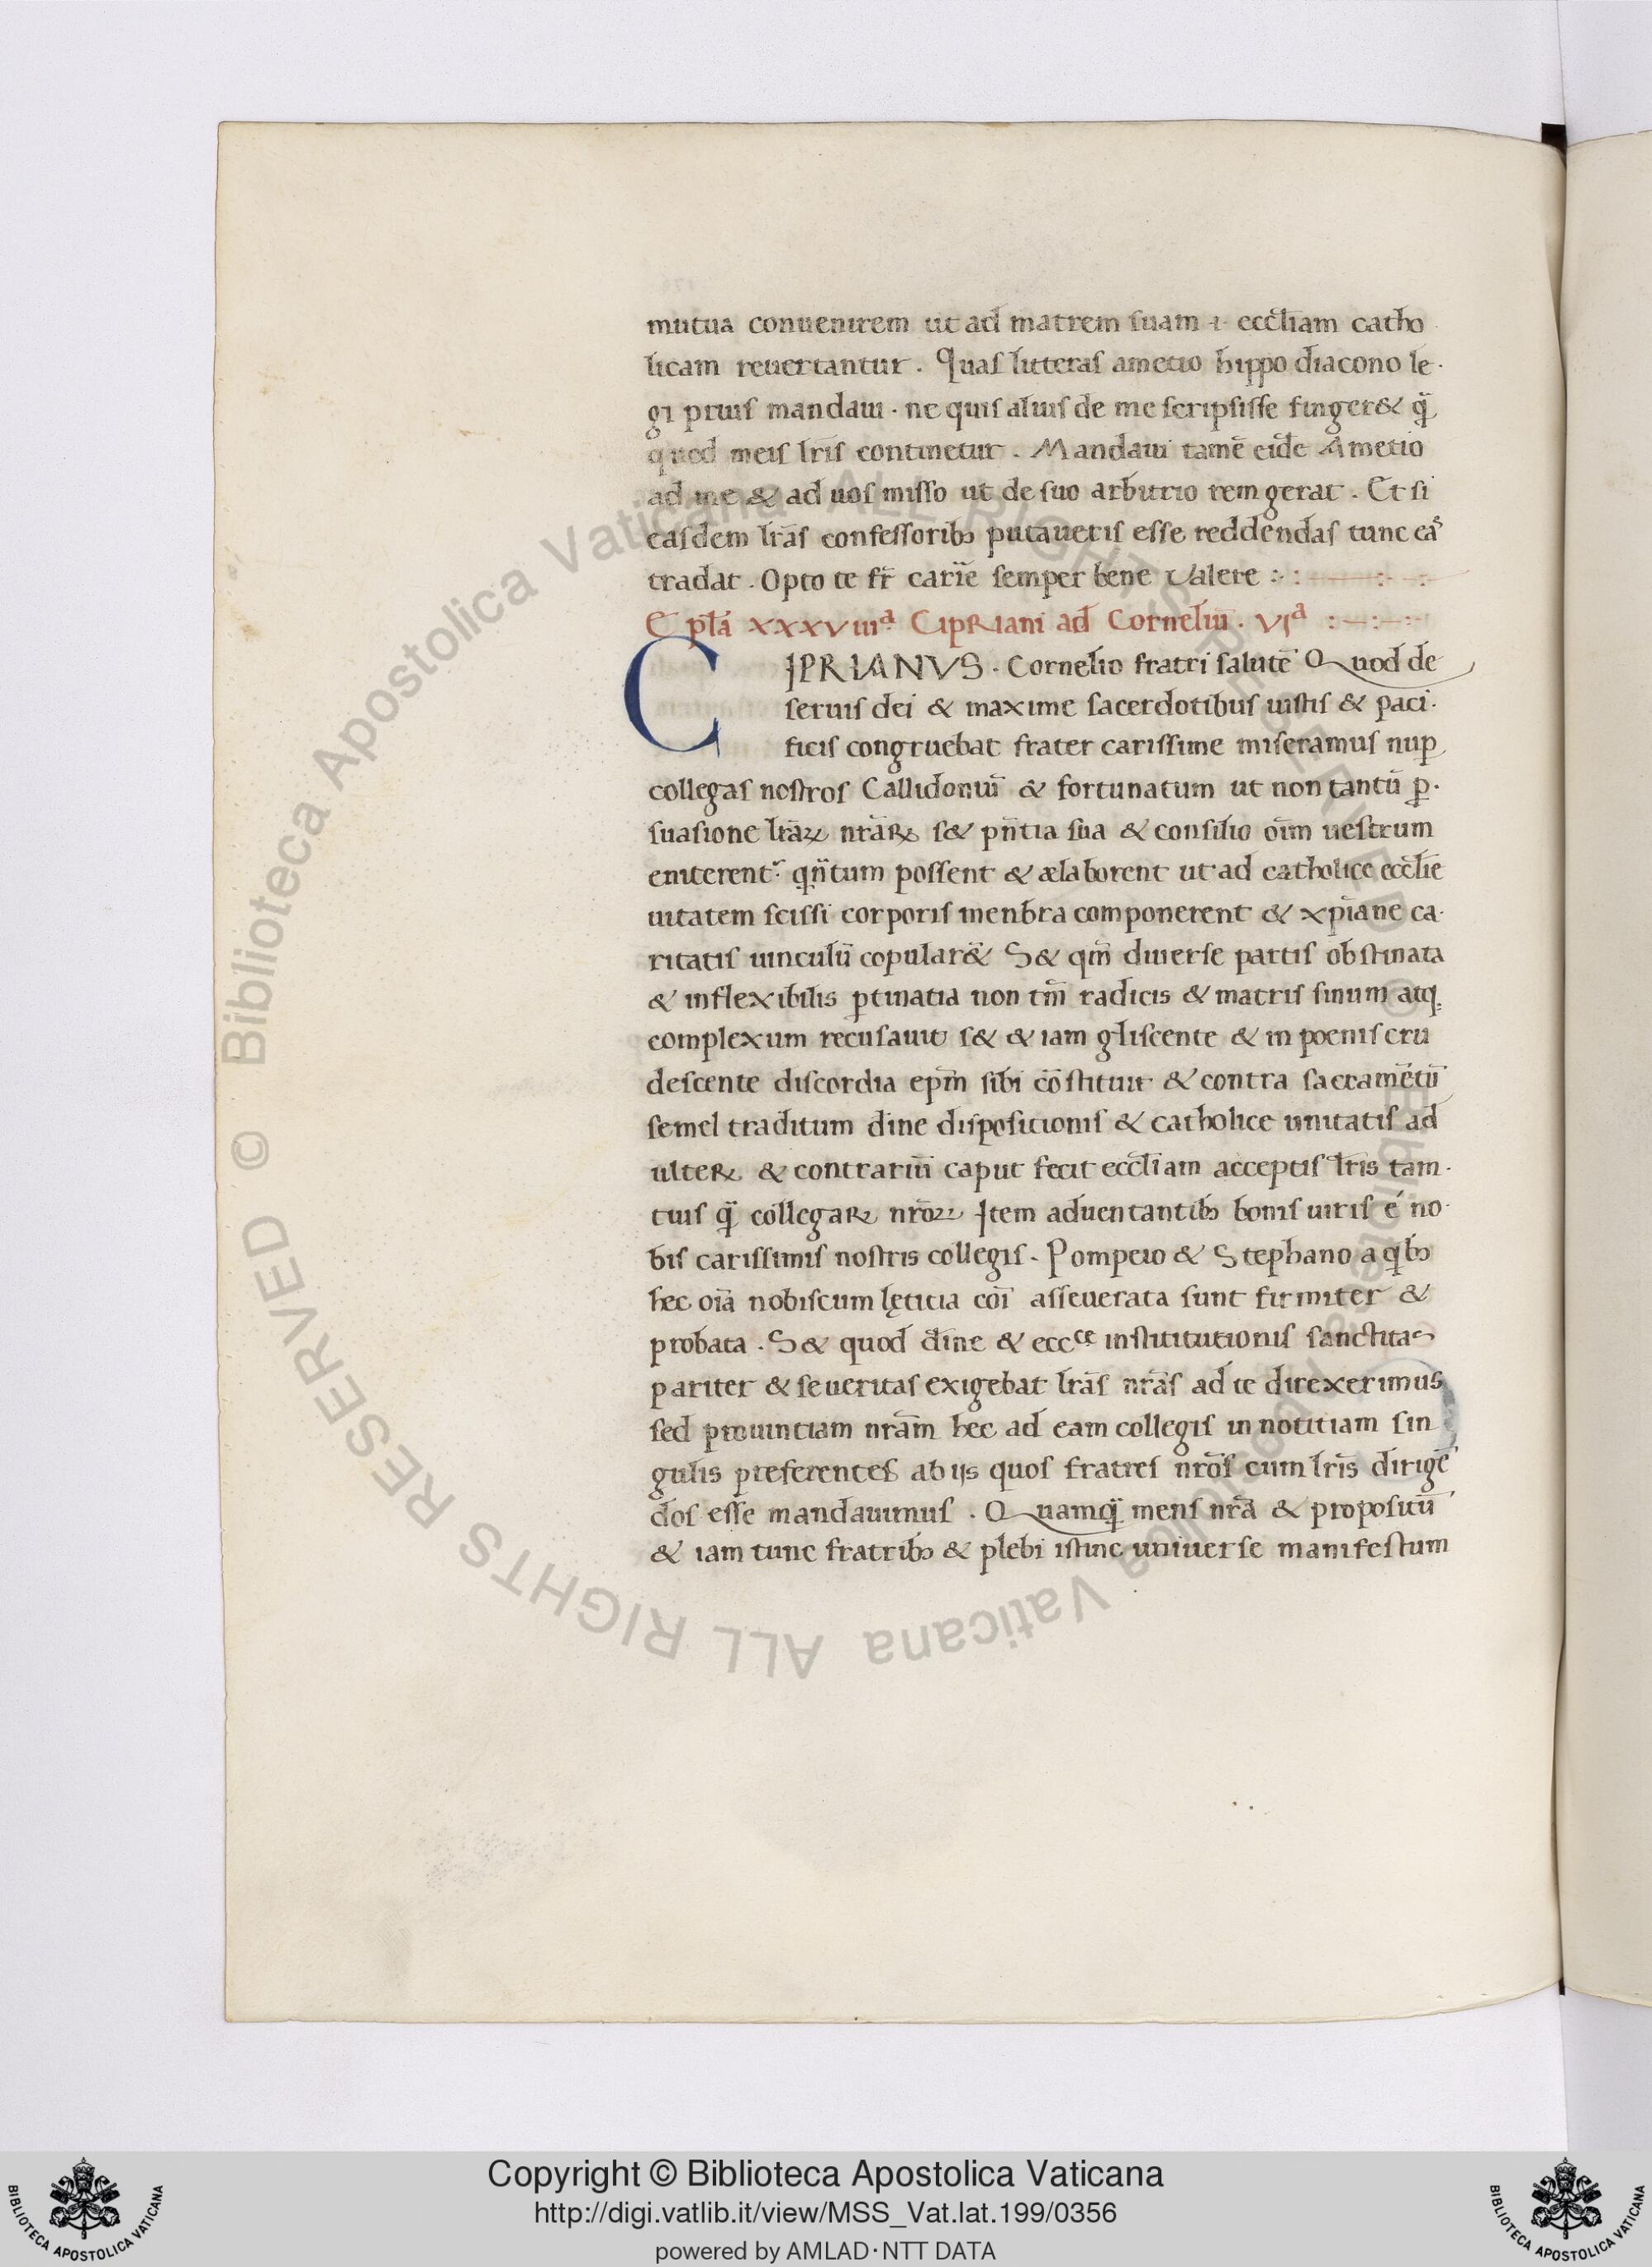 mutua conuenirem ut ad matrem suam .i. eccl̄iam catho
licam reuertantur . Quas litteras ametio hippo diacono le·
gi prius mandaui · ne quis aliuis de me scripsisse finger& q̄
quod meis lr̄is continetur . Mandaui tamē eidē Ametio
ad me & ad uos misso ut de suo arbitrio rem gerat . Et si
easdem lr̄as confessorib; putaueris esse reddendas tunc eas
tradat . Opto te fr̄ carīe semper bene Valere :· : —— :· — :·
Epl̄a xxxviiiᵃ Cipriani ad Corneliū . VIᵃ : — : — :
CIPRIANVS . Cornelio fratri salutē Quod de
seruis dei & maxime sacerdotibus iustis & paci·
ficis congruebat frater carissime miseramus nup̄
collegas nostros Callidoniū & fortunatum ut non tantū ꝑ·
suasione lr̄aꝝ nr̄aꝝ s& pn̄tia sua & consilio oīm uestrum
eniterent̃ qn̄tum possent & ælaborent ut ad catholice eccl̄ie
uitatem scissi corporis menbra componerent & xpīane ca·
ritatis uinculū copular& S& qm̄ diuerse partis obstinata
& inflexibilis ꝑtinatia non tm̄ radicis & matris sinum atq;
complexum recusauit s& & iam gliscente & in poenis cru
descente discordia epm̄ sibi cōstituit & contra sacramētū
semel traditum dine dispositionis & catholice unitatis ad
ulteꝝ & contrariū caput fecit eccl̄iam acceptis lr̄is tam·
tuis q̄ collegaꝝ nr̄oꝝ Item aduentantib; bonis uiris e no·
bis carissimis nostris collegis . Pompeio & Stephano a qb;
hec oīa nobiscum lętitia coī asseuerata sunt firmiter &
probata . S& quod dīne & ecc̄ᶜᵉ instititutionis sanctitas
pariter & seueritas exigebat lr̄as nr̄as ad te direxerimus
sed prouinciam nr̄am hec ad eam collegis in notitiam sin
gulis preferentes ab ijs quos fratres nr̄os cum lr̄is dirigē
dos esse mandauimus . Quamq̄ mens nr̄a & propositū
& iam tunc fratrib; & plebi istinc uniuerse manifestum
© Biblioteca Apostolica Vaticana ALL RIGHTS RESERVED © Biblioteca Apostolica Vaticana ALL RIGHTS RESERVED
Copyright © Biblioteca Apostolica Vaticana
http://digi.vatlib.it/view/MSS_Vat.lat.199/0356
powered by AMLAD·NTT DATA
BIBLIOTECA APOSTOLICA VATICANA
BIBLIOTECA APOSTOLICA VATICANA